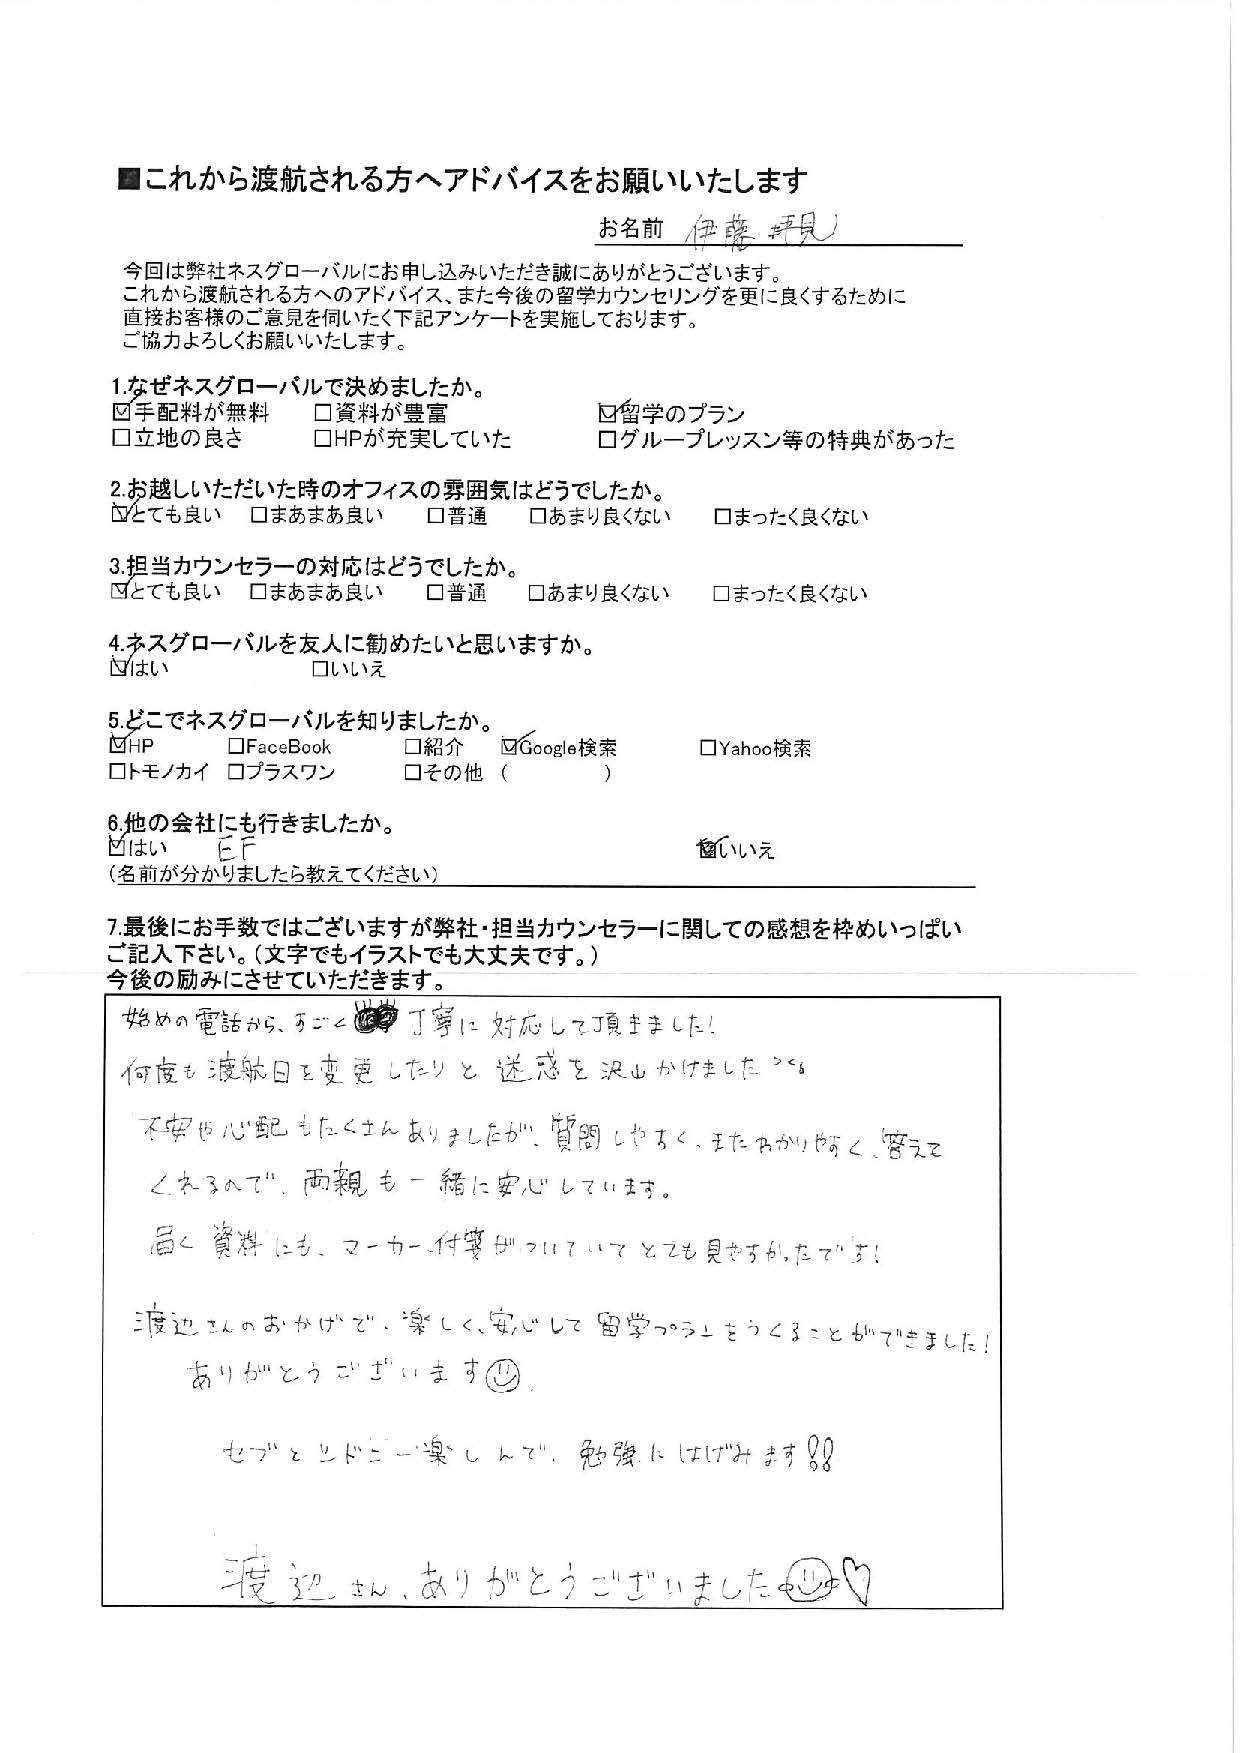 ■これから渡航される方へアドバイスをお願いいたします
お名前 伊藤 見
今回は弊社ネスグローバルにお申し込みいただき誠にありがとうございます。
これから渡航される方へのアドバイス、また今後の留学カウンセリングを更に良くするために
直接お客様のご意見を伺いたく下記アンケートを実施しております。
ご協力よろしくお願いいたします。
1.なぜネスグローバルで決めましたか。
☑手配料が無料 □資料が豊富 ☑留学のプラン
□立地の良さ □HPが充実していた □グループレッスン等の特典があった
2.お越しいただいた時のオフィスの雰囲気はどうでしたか。
☑とても良い □まあまあ良い □普通 □あまり良くない □まったく良くない
3.担当カウンセラーの対応はどうでしたか。
☑とても良い □まあまあ良い □普通 □あまり良くない □まったく良くない
4.ネスグローバルを友人に勧めたいと思いますか。
☑はい □いいえ
5.どこでネスグローバルを知りましたか。
☑HP □FaceBook □紹介 ☑Google検索 □Yahoo検索
□トモノカイ □プラスワン □その他 ( )
6.他の会社にも行きましたか。
☑はい EF □いいえ
(名前が分かりましたら教えてください)
7.最後にお手数ではございますが弊社・担当カウンセラーに関しての感想を枠めいっぱい
ご記入下さい。(文字でもイラストでも大丈夫です。)
今後の励みにさせていただきます。
始めの電話から、すごく 丁寧に対応して頂きました!
何度も渡航日を変更したりと迷惑を沢山かけました
不安や心配もたくさんありましたが、質問しやすく、またわかりやすく、答えて
くれるので、両親も一緒に安心しています。
届く資料にも、マーカー、付箋がついていてとても見やすかったです!
渡辺さんのおかげで、楽しく、安心して留学プランをつくることができました!
ありがとうございます☺
セブとシドニー楽しんで、勉強にはげみます!!
渡辺さん、ありがとうございました☺♡